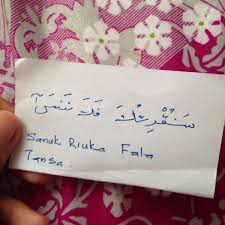 سَنُقْرِئُكَ فَلَا تَنسَىٰ
Sanuk Riuka Fala
Tansa.